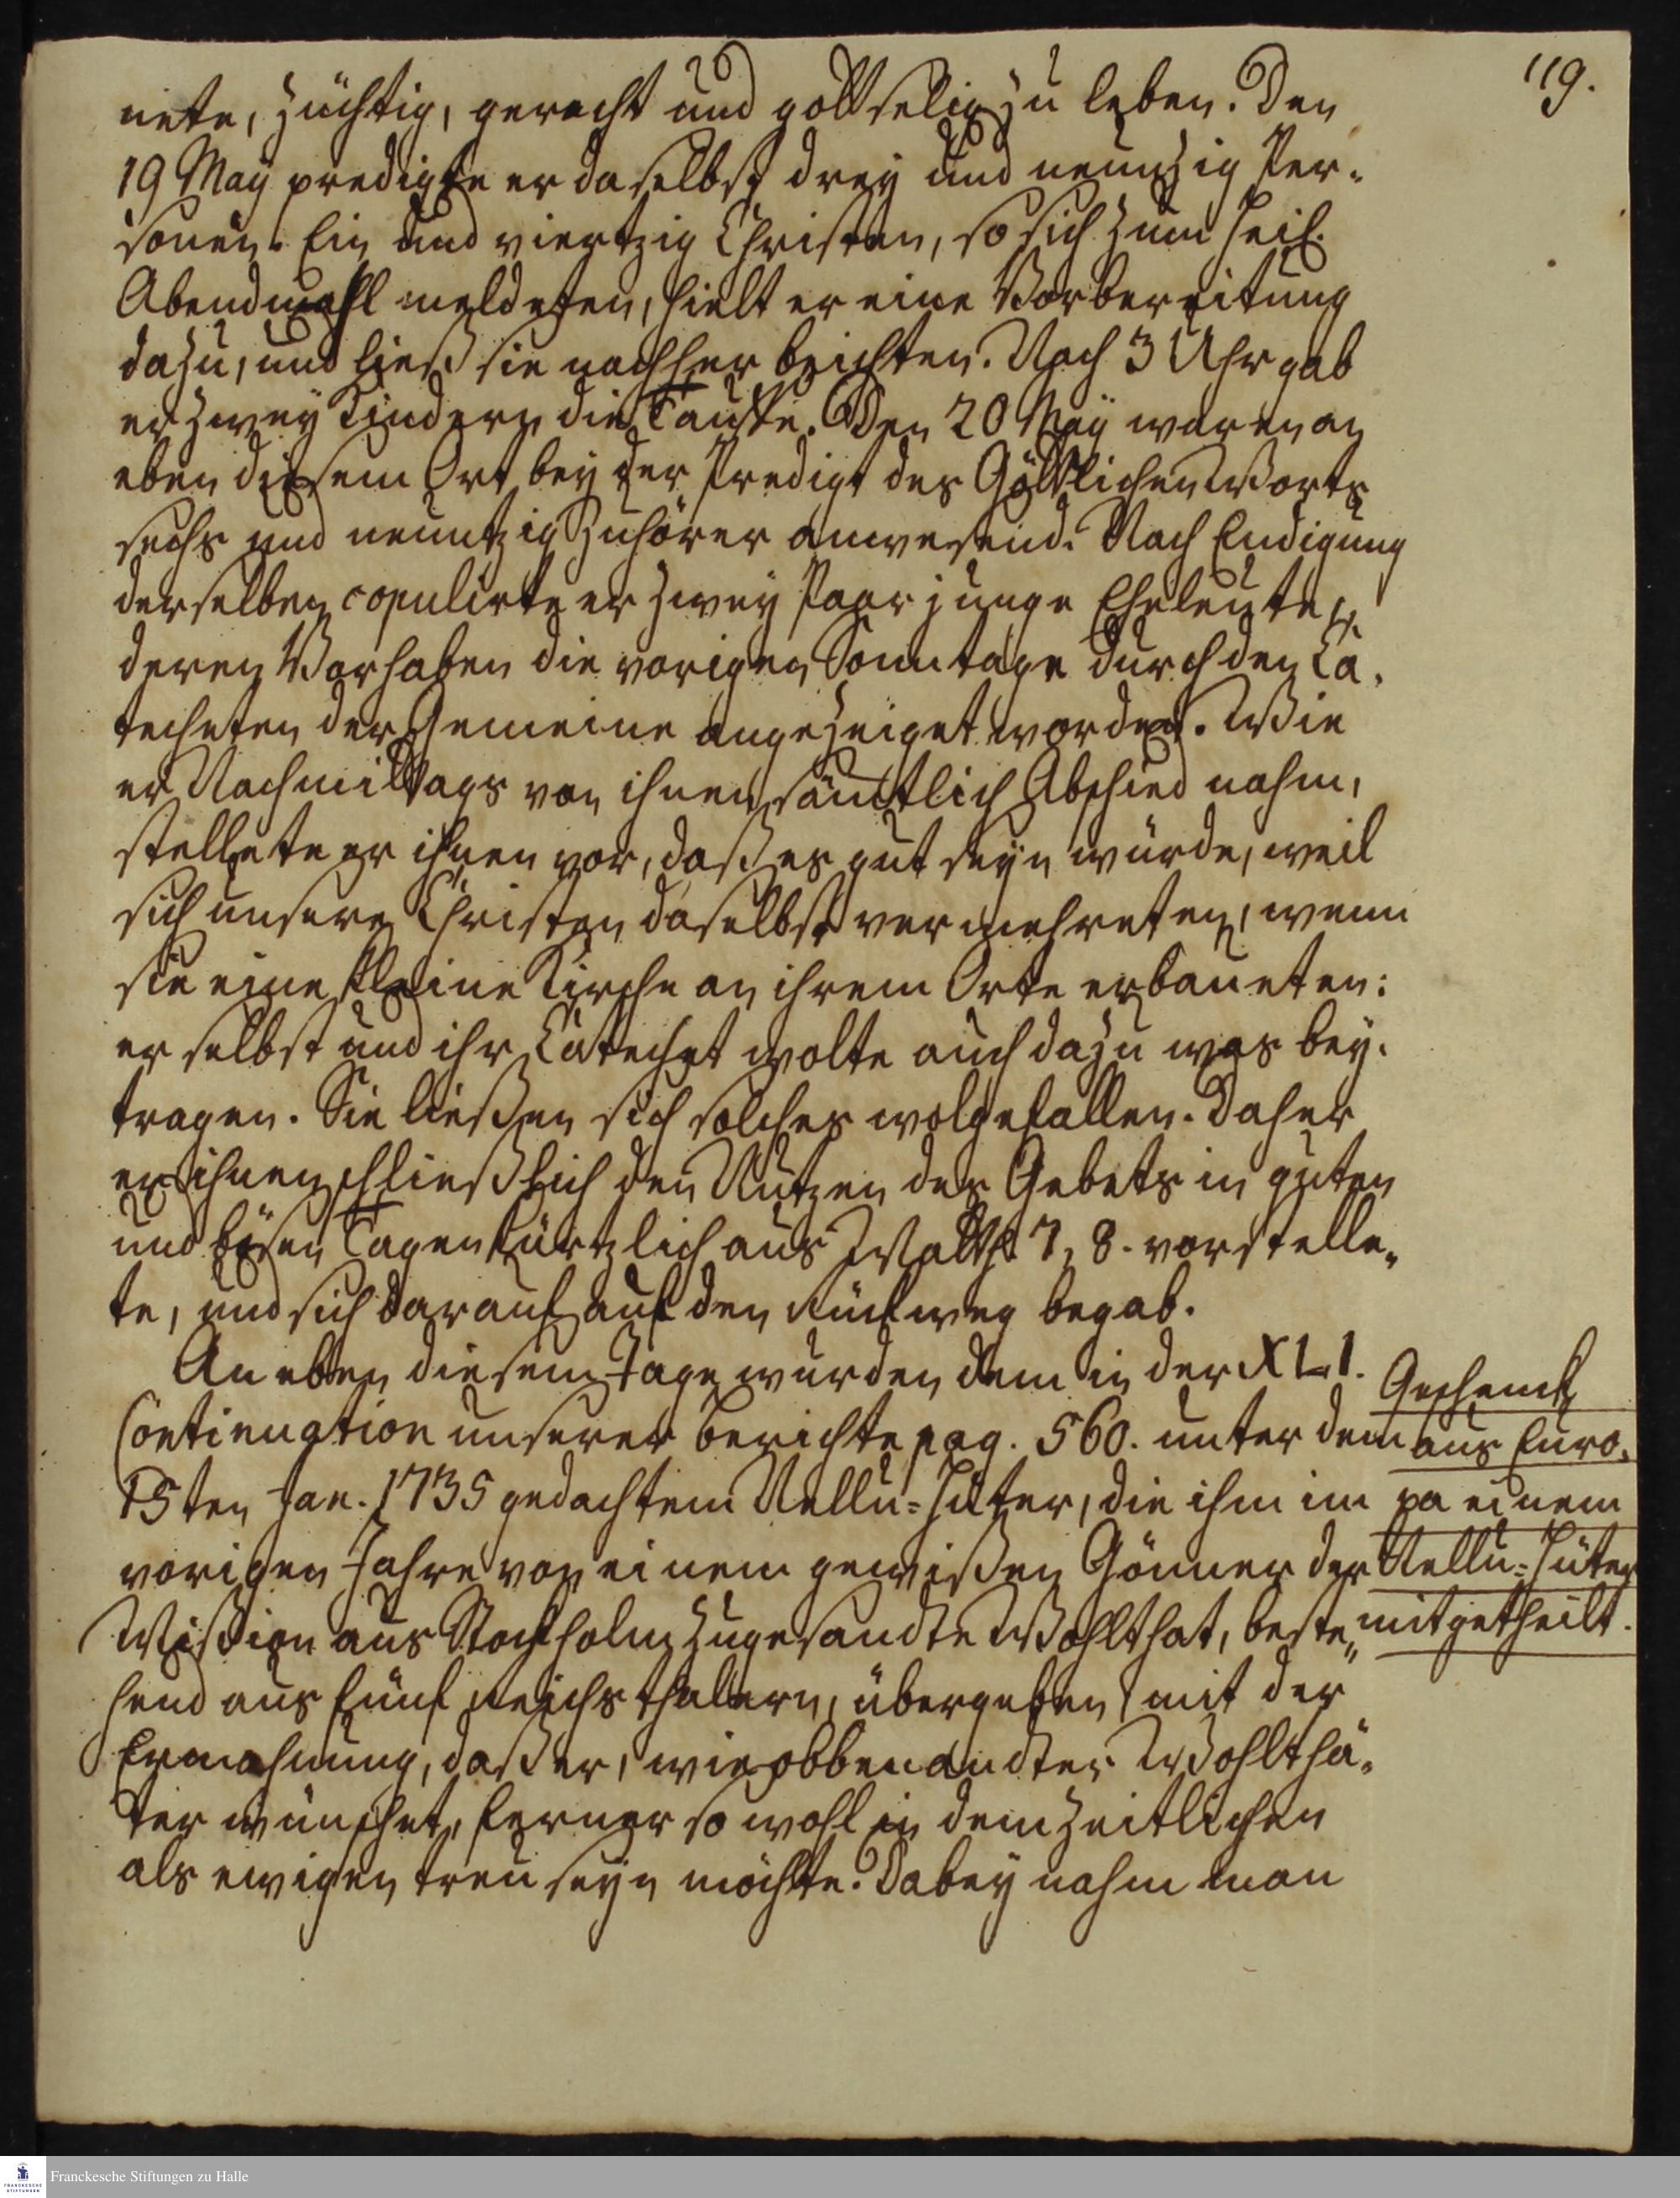 119.
nete, züchtig, gerecht und gottselig zu leben. Den
19 May predigte er daselbst drey und neunzig Per-
sonen. Ein und viertzig Christen, so sich zum heil.
Abendmahl meldeten, hielt er eine Vorbereitung
dazu, und ließ sie nachher beichten. Nach 3 Uhr gab
er zwey Kindern die Tauffe. Den 20 May waren an
eben diesem Ort bey der Predigt des Göttlichen Worts
sechs und neuntzig Zuhörer anwesend. Nach Endigung
derselben copulirte er zwey Paar junge Eheleute,
deren Vorhaben die vorigen Sonntage durch den Ca-
techeten der Gemeine angezeiget worden. Wie
er Nachmittags von ihnen sämtlich Abschied nahm,
stellete er ihnen vor, daß es gut seyn würde, weil
sich unsere Christen daselbst vermehreten, wenn
sie eine kleine Kirche an ihrem Orte erbaueten:
er selbst und ihr Catechet wolte auch dazu was bey-
tragen. Sie ließen sich solches wolgefallen. Daher
er ihnen schließlich den Nutzen des Gebets in guten
und bösen Tagen kürtzlich aus Matth. 7, 8. vorstelle-
te, und sich darauf auf den Rückweg begab.
An eben diesem Tage wurden dem in der XLI.
Continuation unserer Berichte pag. 560. unter dem
15ten Jan. 1735 gedachtem Nellu-Hüter, die ihm im
vorigen Jahre von einem gewißen Gönner der
Mißion aus Stockholm zugesandte Wohlthat, beste-
hend aus fünf Reichsthalern, übergeben mit der
Ermahnung, daß er, wie obbenandter Wohlthä-
ter wünschet, ferner so wohl in dem Zeitlichen
als ewigen treu seyn möchte. Dabey nahm man
Geschenck
aus Euro-
pa einem
Nellu-Hüter
mitgetheilt.
Franckesche Stiftungen zu Halle
FRANCKESCHE
STIFTUNGEN